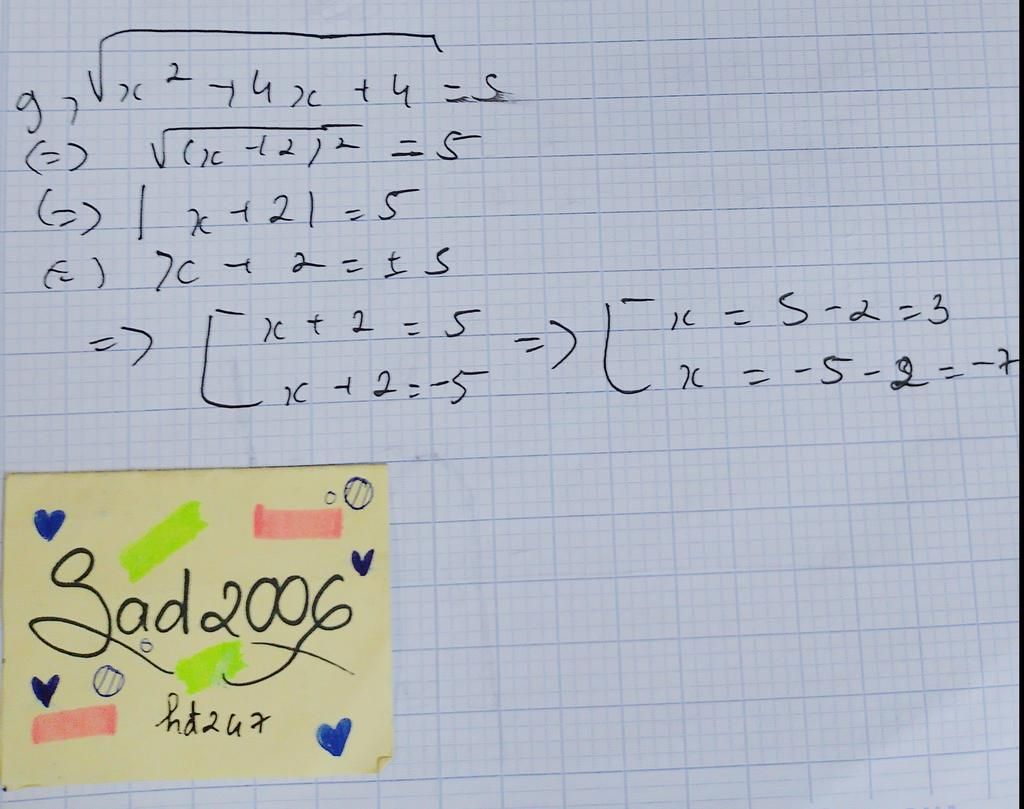 g, √x² + 4x + 4 = 5
(=) √(x + 2)² = 5
(=) | x + 2 | = 5
(=) x + 2 = ± 5
=> [ x + 2 = 5 => [ x = 5 - 2 = 3
x + 2 = -5 x = -5 - 2 = -7
Sad2006
hdt247